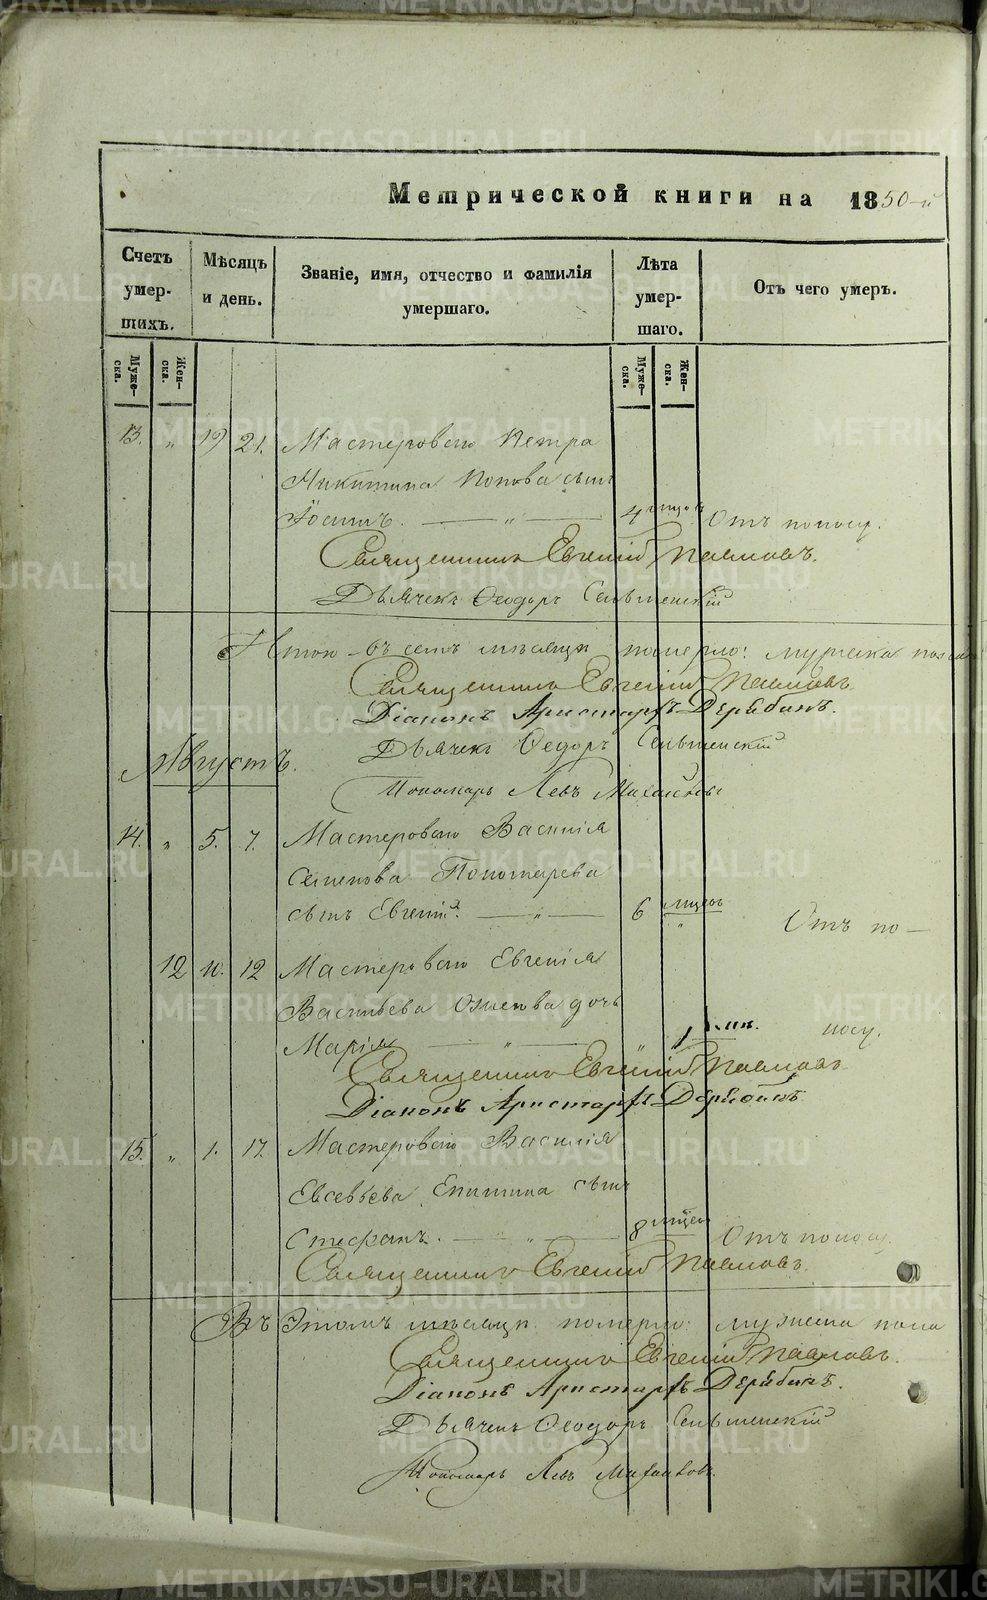 Метрической книги на 1850-й
Счетъ умер- шихъ.
Мѣсяцъ и день.
Званіе, имя, отчество и фамилія умершаго.
Лѣта умер- шаго.
Отъ чего умеръ.
Муже- ска.
Жен- ска.
Муже- ска.
Жен- ска.
13. " 19 21. Мастероваго Петра
Никитина Попова сынъ
Іосифъ. — " — 4 Отъ поносу.
Священникъ Евгеній Павловъ.
Дьячекъ Ѳеодоръ
Итого въ семъ мѣсяцѣ померло: мужеска пола
Священникъ Евгеній Павловъ.
Діаконъ Аристархъ Дерябинъ.
Дьячекъ Ѳеодоръ
Августъ.
Пономарь Левъ
14. " 5. 7. Мастероваго Василія
Семенова Пономарева
сынъ Евгеній. — " — 6 "
Отъ по-
12 10. 12 Мастероваго Евгенія
Васильева дочь
Марія — " — " 1 носу.
Священникъ Евгеній Павловъ
Діаконъ Аристархъ Дерябинъ.
15. " 1. 17. Мастероваго Василія
Евсевьева сынъ
Стефанъ. — " — 8 Отъ поносу.
Священникъ Евгеній Павловъ.
Въ этомъ мѣсяцѣ померло: мужеска пола
Священникъ Евгеній Павловъ.
Діаконъ Аристархъ Дерябинъ.
Дьячекъ Ѳеодоръ
Пономарь Левъ
METRIKI.GASO-URAL.RU